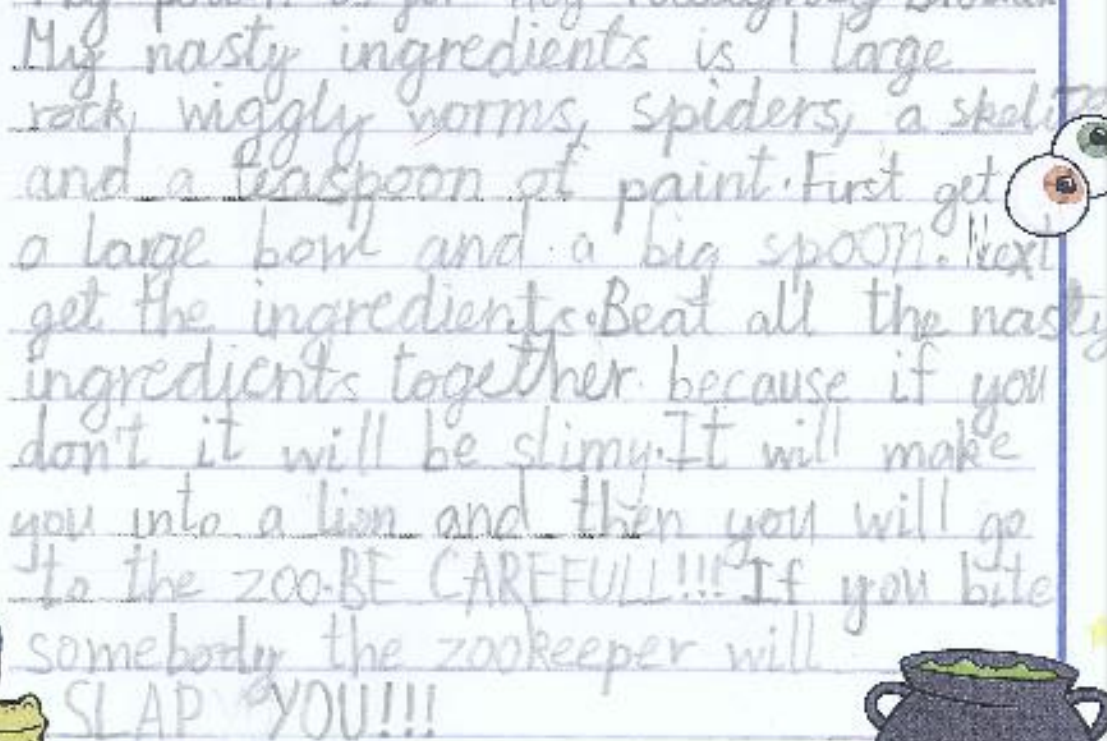 My nasty ingredients is 1 large
rock, wiggly worms, spiders, a
and a teaspoon of paint. First get
a large bowl and a big spoon. Next
get the ingredients. Beat all the nasty
ingredients together because if you
don't it will be slimy. It will make
you into a lion and then you will go
to the zoo. BE CAREFULL!!! If you bite
somebody the zookeeper will
SLAP YOU!!!